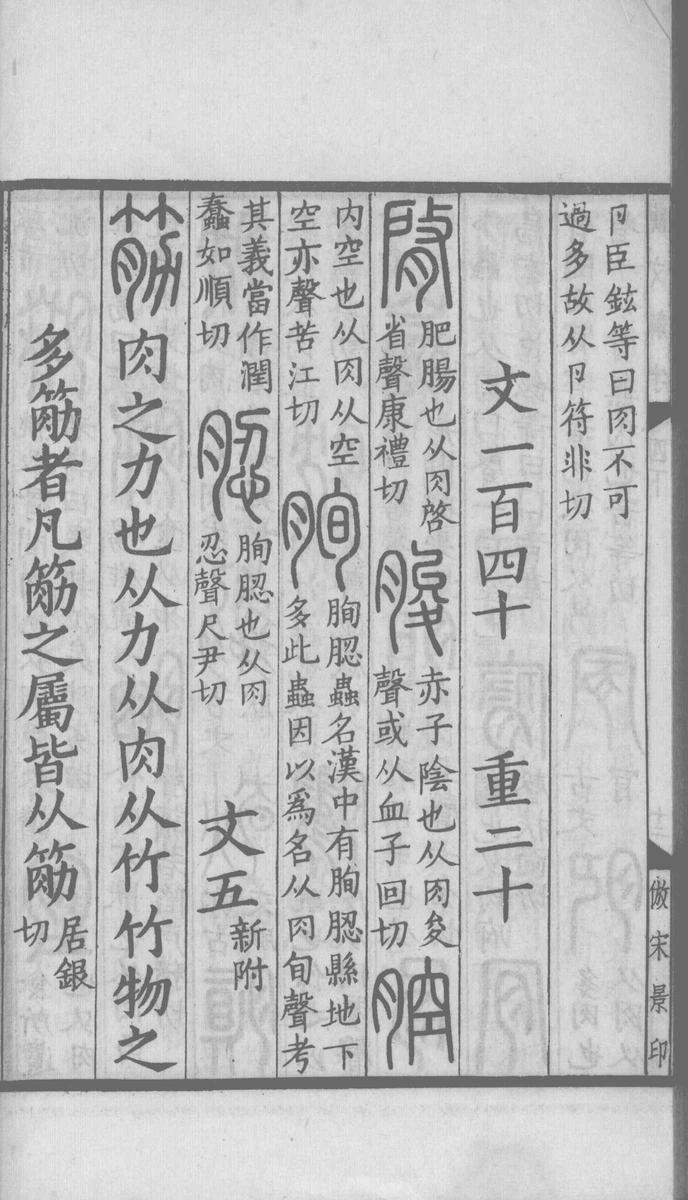 倣宋景印
卪臣鉉等曰肉不可
過多故从卪符非切
文一百四十 重二十
䏿 肥腸也从肉啓省聲康禮切 朘 赤子陰也从肉夋聲或从血子回切 腔
内空也从肉从空空亦聲苦江切 胊 胊䏰蟲名漢中有胊䏰縣地下多此蟲因以爲名从肉旬聲考
其義當作潤蠢如順切 䏰 胊䏰也从肉忍聲尺尹切 文五 新附
筋 肉之力也从力从肉从竹竹物之
多筋者凡筋之屬皆从筋 居銀切